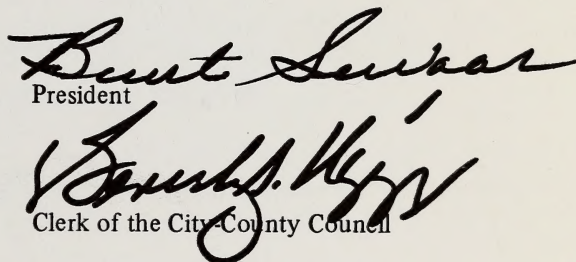 President
Beverly S. Rippy
Clerk of the City-County Council